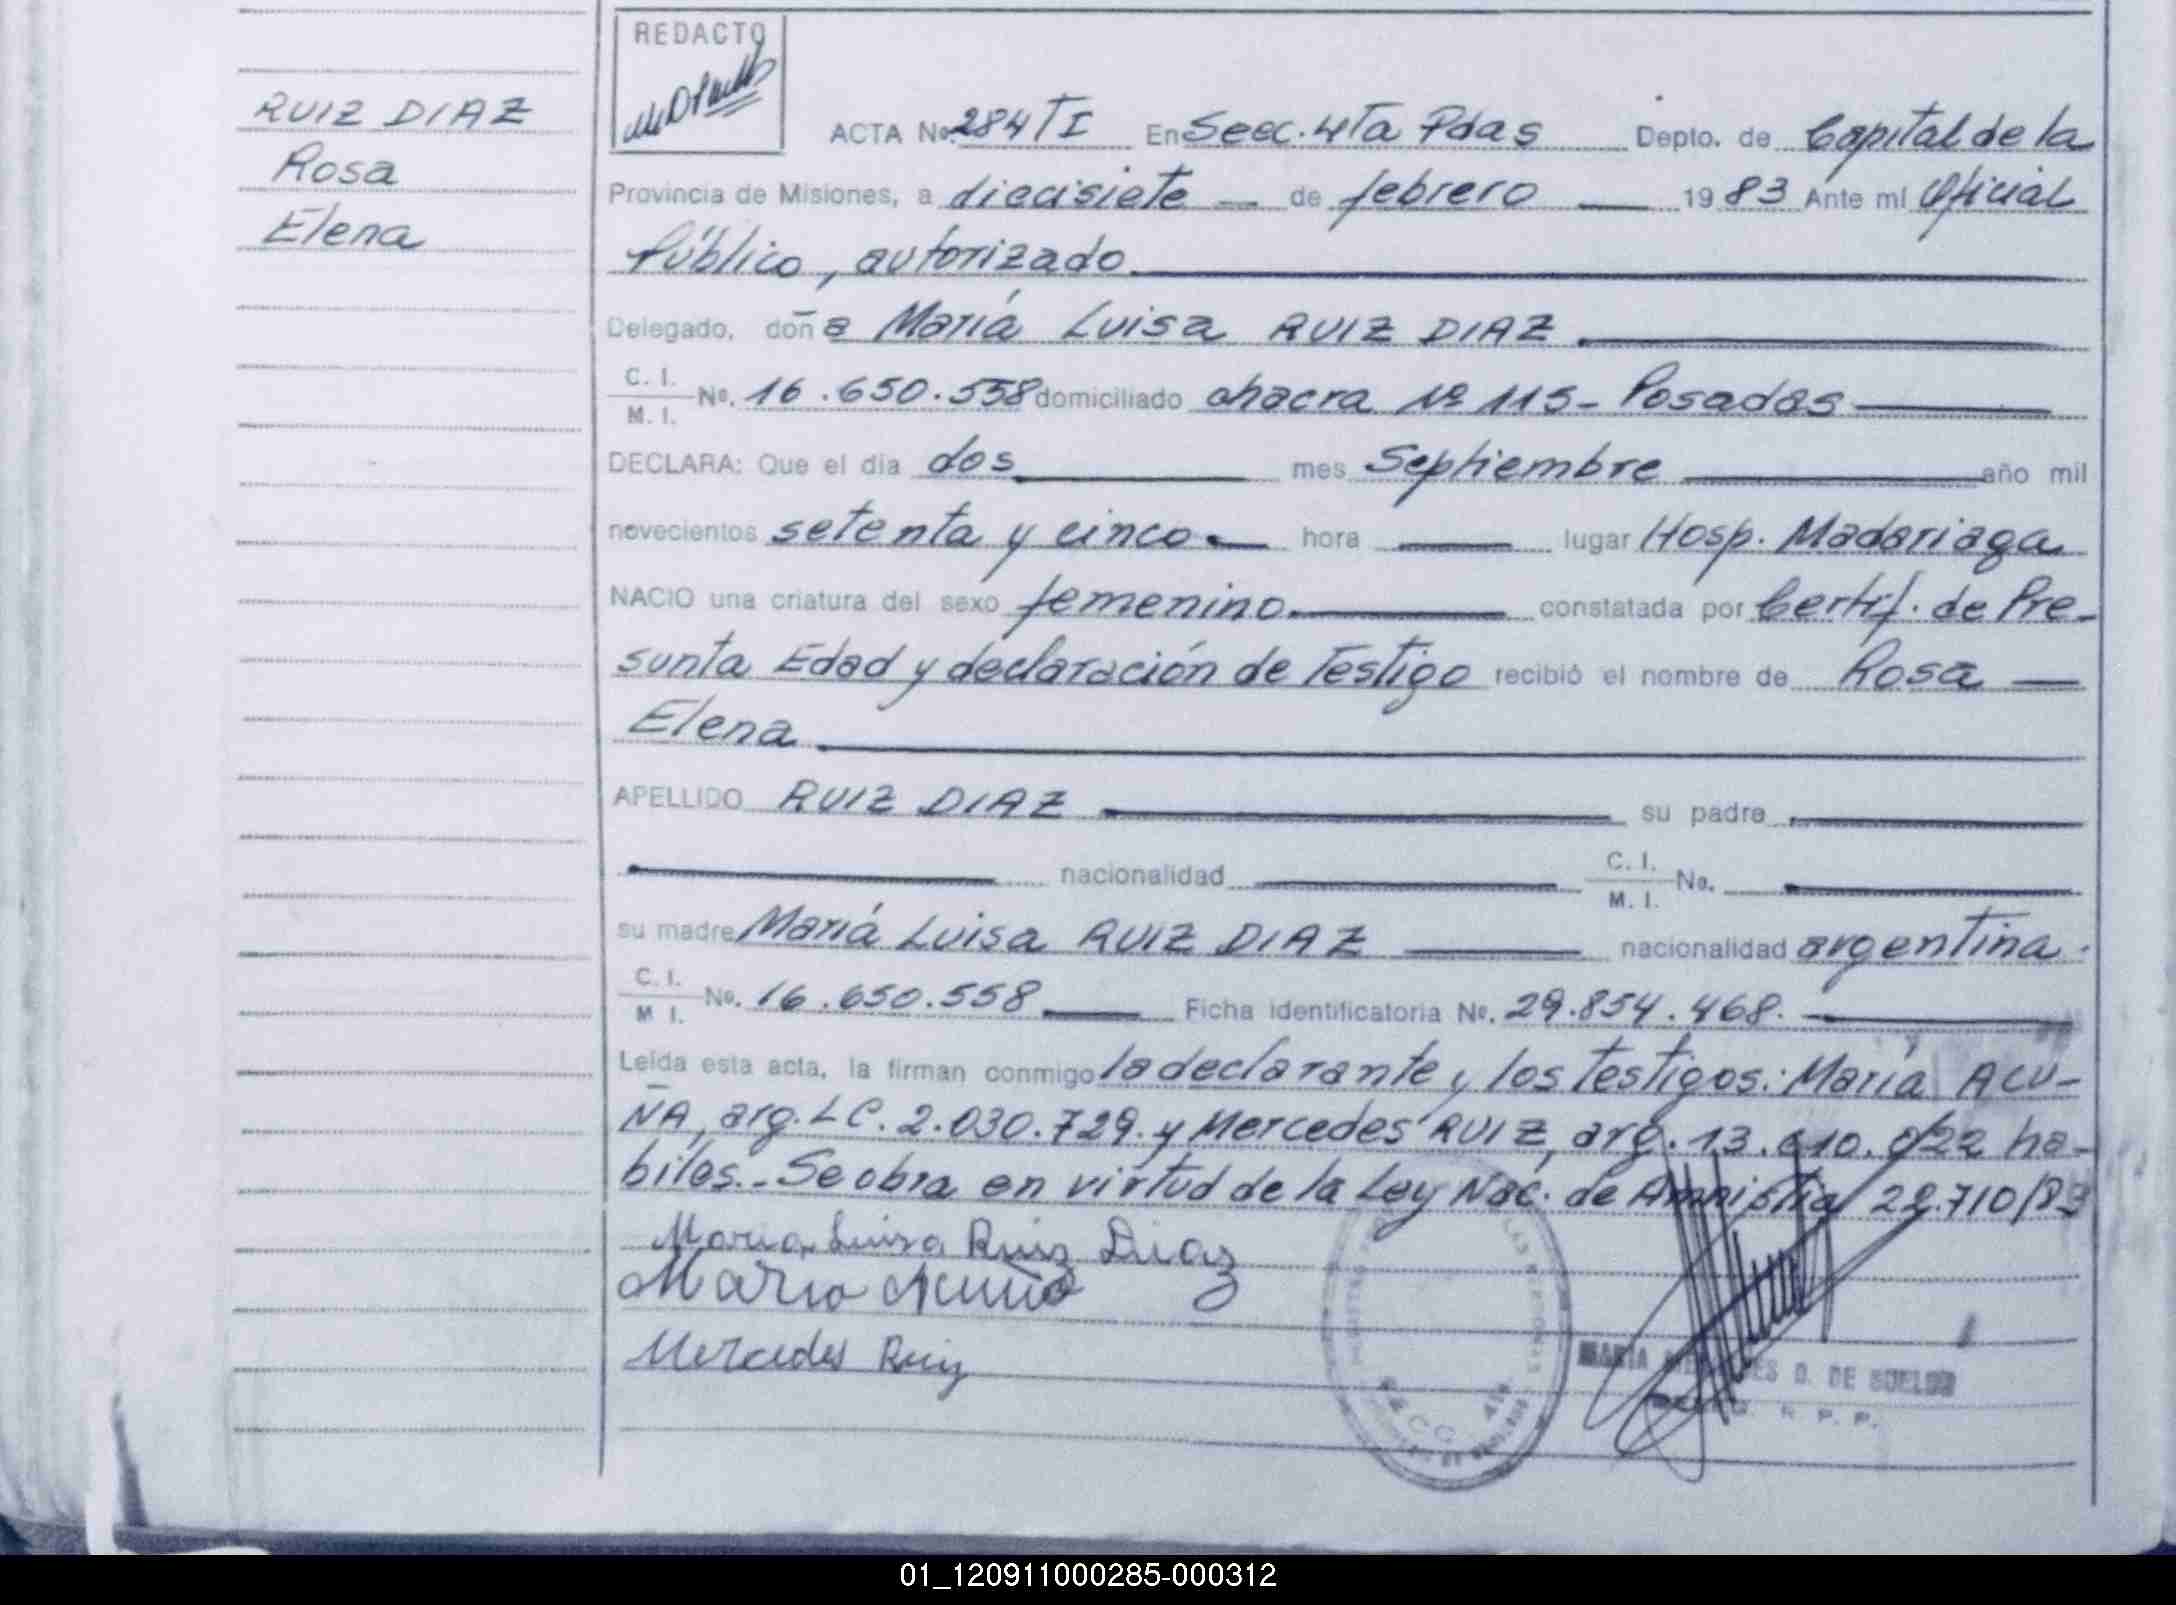 RUIZ DIAZ
Rosa
Elena
REDACTO
ACTA No. 284 TI En Secc. 4ta Pdas Depto. de Capital de la
Provincia de Misiones, a diecisiete de febrero 19 83 Ante mi Oficial
Público, autorizado
Delegado, doña María Luisa RUIZ DIAZ
C. I.
M. I.
No. 16.650.558 domiciliado chacra Nº 115 - Posadas
DECLARA: Que el día dos mes Septiembre año mil
novecientos setenta y cinco hora lugar Hosp. Madariaga
NACIO una criatura del sexo femenino constatada por Certif. de Pre-
sunta Edad y declaración de Testigo recibió el nombre de Rosa
Elena
APELLIDO RUIZ DIAZ su padre
nacionalidad C. I.
M. I.
No.
su madre María Luisa RUIZ DIAZ nacionalidad argentina.
C. I.
M I.
No. 16.650.558 Ficha identificatoria No. 29.854.468.
Leída esta acta, la firman conmigo la declarante y los testigos: María ACU-
ÑA, arg. LC. 2.030.729. y Mercedes RUIZ, arg. 13.610.022 ha-
biles.- Se obra en virtud de la Ley Nac. de Amnistía 22.710/83
Maria Luisa Ruiz Diaz
Maria Acuña
Mercedes Ruiz
MARIA D. DE
01_120911000285-000312